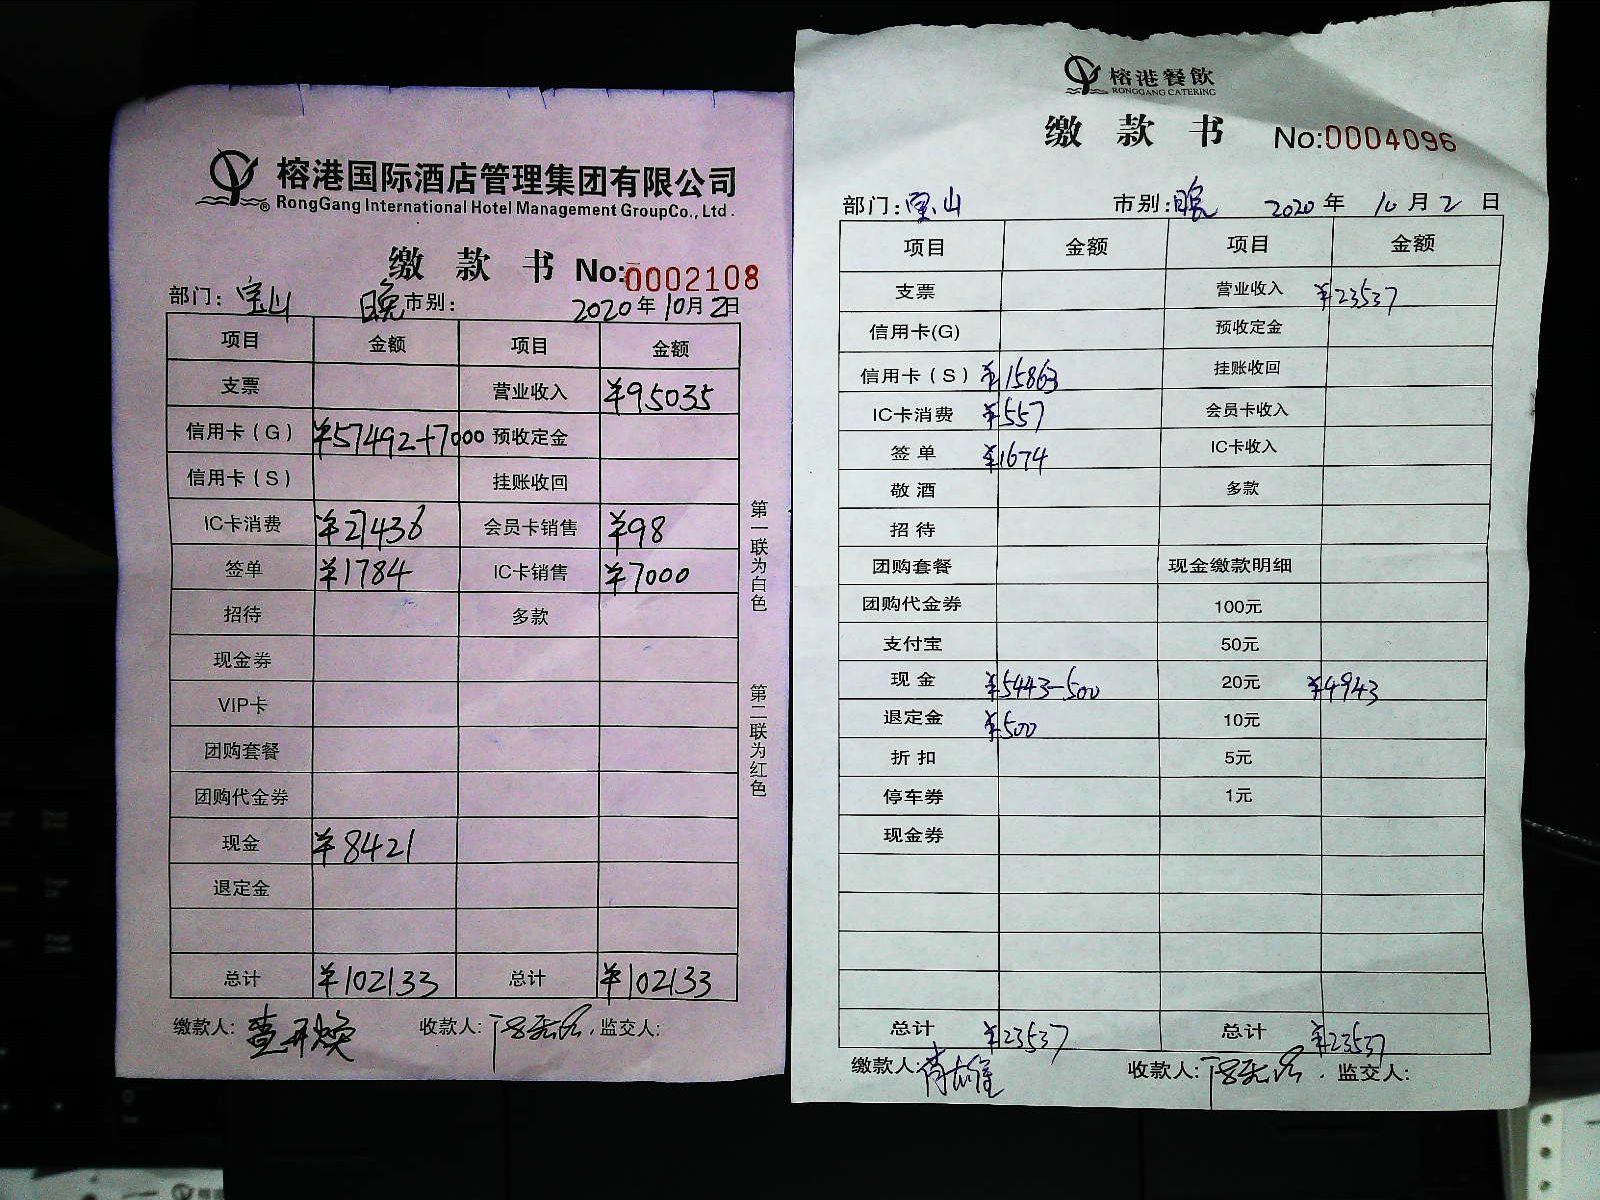 榕港国际酒店管理集团有限公司
RongGang International Hotel Management GroupCo., Ltd.
缴款书 No:0002108
部门: 宝山 晚 市别: 2020年10月2日
项目 金额 项目 金额
支票 营业收入 ¥95035
信用卡(G) ¥57492+7000 预收定金
信用卡(S) 挂账收回
IC卡消费 ¥27436 会员卡销售 ¥98
签单 ¥1784 IC卡销售 ¥7000
招待 多款
现金券
VIP卡
团购套餐
团购代金券
现金 ¥8421
退定金
总计 ¥102133 总计 ¥102133
缴款人: 收款人: 监交人:
第一联为白色
第二联为红色
榕港餐飲
RONGGANG CATERING
缴款书 No:0004096
部门: 宝山 市别: 晚 2020年10月2日
项目 金额 项目 金额
支票 营业收入 ¥23537
信用卡(G) 预收定金
信用卡(S) ¥15863 挂账收回
IC卡消费 ¥557 会员卡收入
签单 ¥1674 IC卡收入
敬酒 多款
招待
团购套餐 现金缴款明细
团购代金券 100元
支付宝 50元
现金 ¥5443-500 20元 ¥4943
退定金 ¥500 10元
折扣 5元
停车券 1元
现金券
总计 ¥23537 总计 ¥23537
缴款人: 收款人: 监交人: